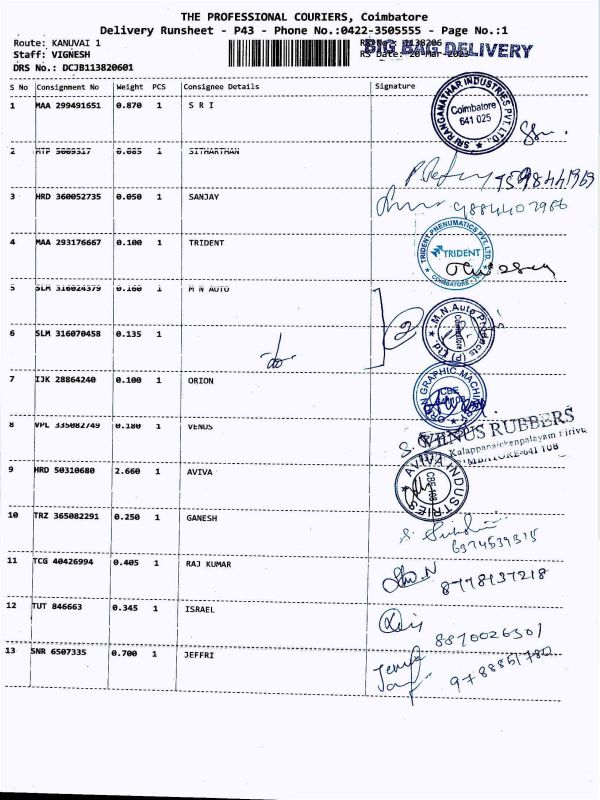 THE PROFESSIONAL COURIERS, Coimbatore
Delivery Runsheet - P43 - Phone No.:0422-3505555 - Page No.:1
Route: KANUVAI 1
BIG BAG DELIVERY
Staff: VIGNESH
DRS No.: DCJB113820601
S No Consignment No Weight PCS Consignee Details Signature
1 MAA 299491651 0.870 1 S R I
SRI RANGANATHAR INDUSTRIES PVT. LTD.
Coimbatore
641 025
2 MTP 5089317 0.085 1 SITHARTHAN
7598441969
3 HRD 360052735 0.050 1 SANJAY
9884407986
4 MAA 293176667 0.100 1 TRIDENT
TRIDENT PNEUMATICS PVT. LTD
TRIDENT
COIMBATORE
5 SLM 316024379 0.160 1 M N AUTO
2
M.N. Auto Products (P) Ltd.
Coimbatore
6 SLM 316070458 0.135 1
-do-
7 IJK 28864240 0.100 1 ORION
ORION GRAPHIC MACHINERY
CBE
8 VPL 335082749 0.180 1 VENUS
VENUS RUBBERS
Kalappanaickenpalayam
COIMBATORE-641 108
9 HRD 50310680 2.660 1 AVIVA
AVIVA INDUSTRIES
10 TRZ 365082291 0.250 1 GANESH
6374539315
11 TCG 40426994 0.405 1 RAJ KUMAR
8778137218
12 TUT 846663 0.345 1 ISRAEL
8870026301
13 SNR 6507335 0.700 1 JEFFRI
9788861780